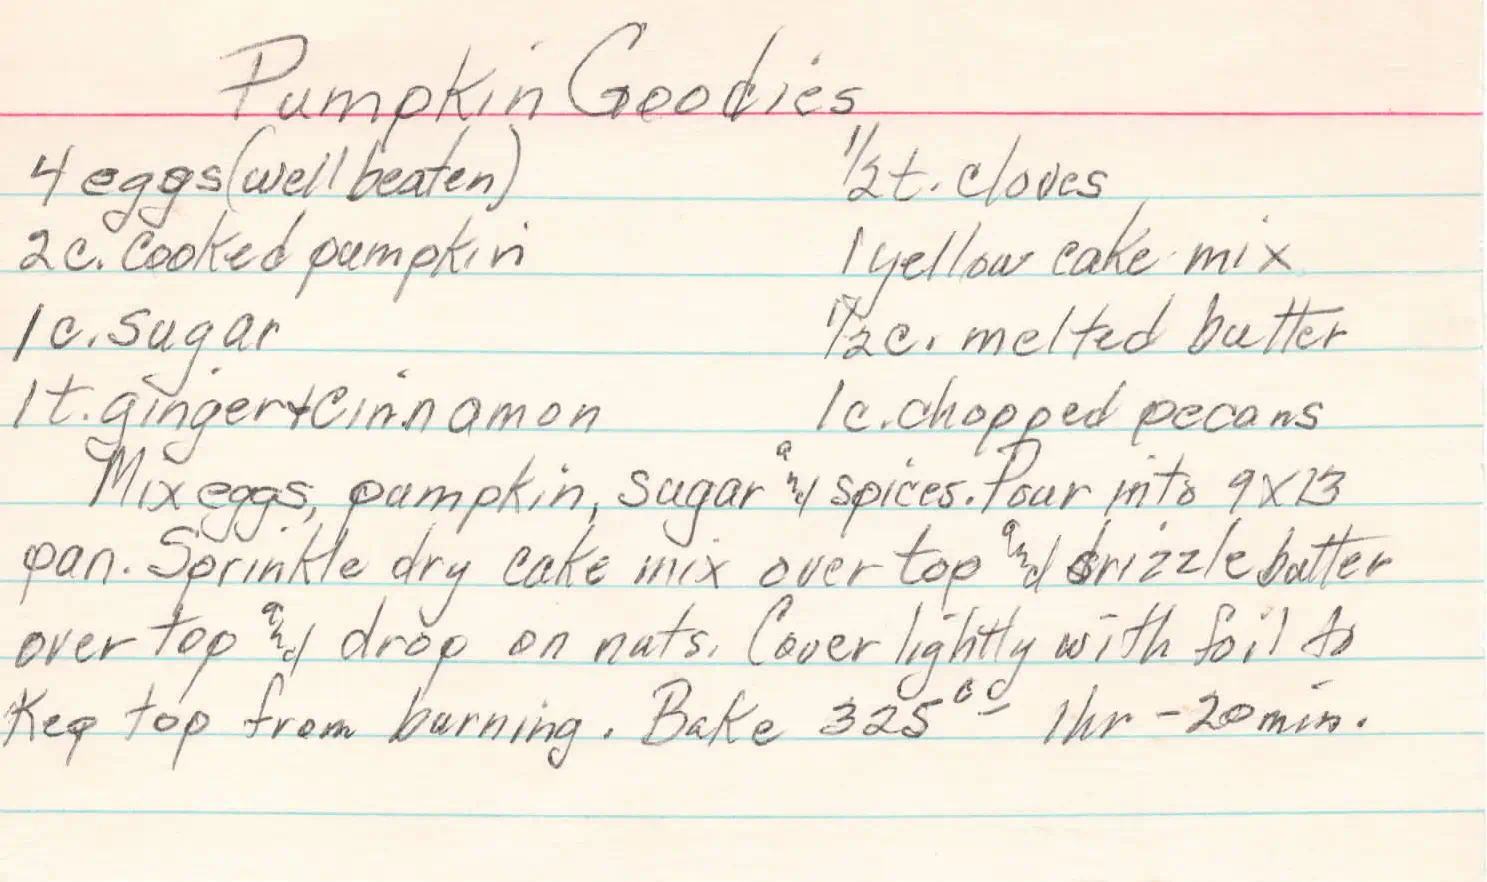 Pumpkin Goodies
4 eggs (well beaten)
2 c. cooked pumpkin
1 c. sugar
1 t. ginger + cinnamon
1/2 t. cloves
1 yellow cake mix
1/2 c. melted butter
1 c. chopped pecans
Mix eggs, pumpkin, sugar and spices. Pour into 9x13
pan. Sprinkle dry cake mix over top and drizzle butter
over top and drop on nuts. Cover lightly with foil to
Keep top from burning. Bake 325° 1 hr - 20 min.